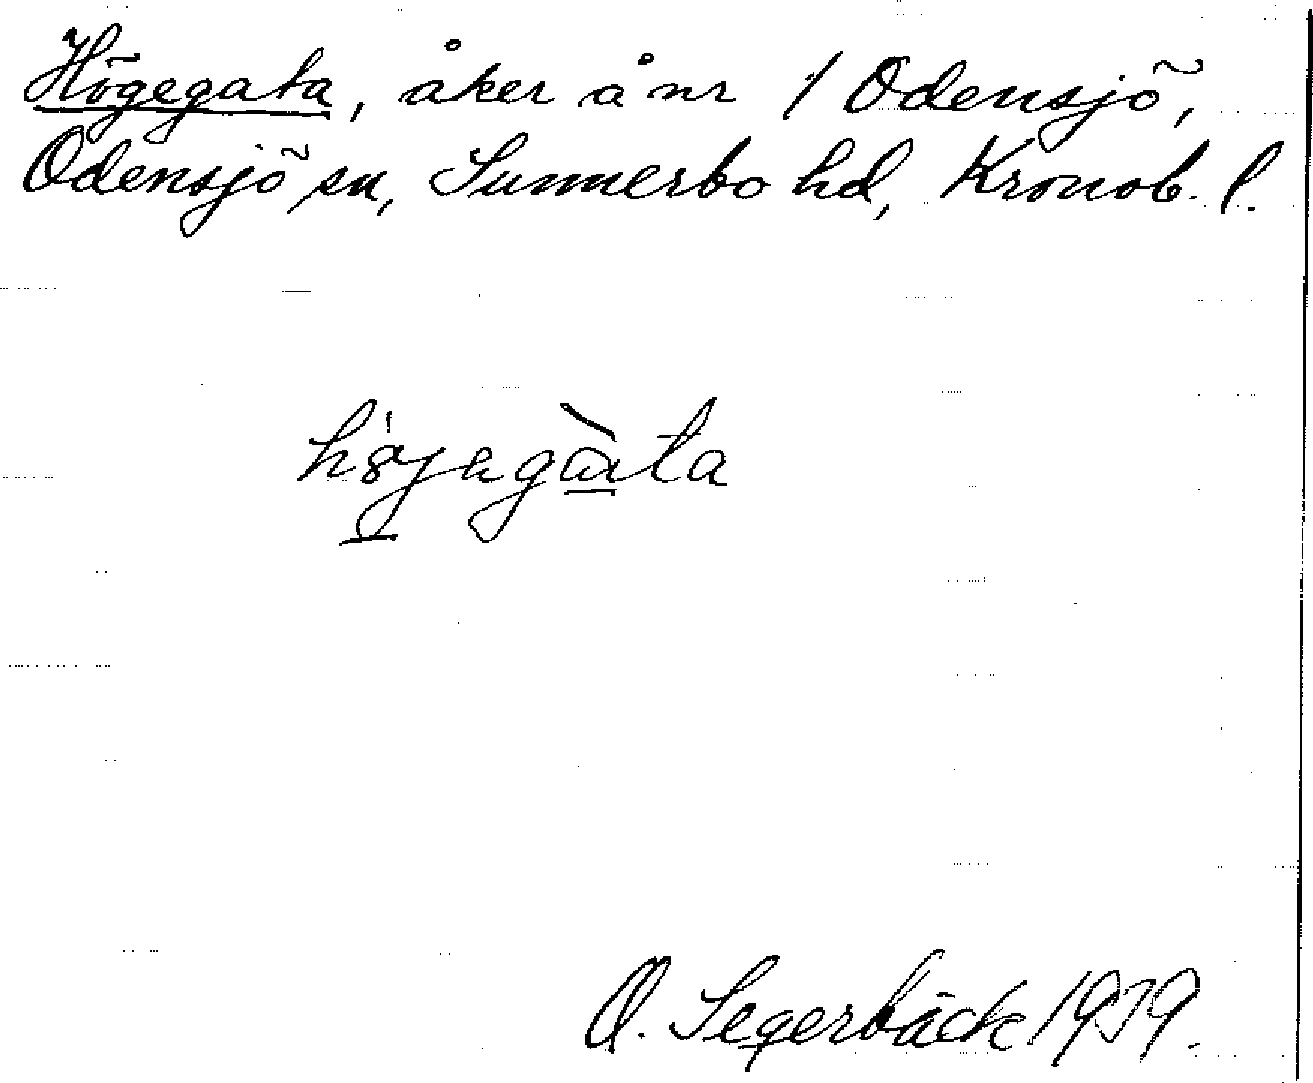 Högegata, åker å nr 1 Odensjö,
Odensjö sn, Sunnerbo hd, Kronob. l.
O. Segerbäck 1939.